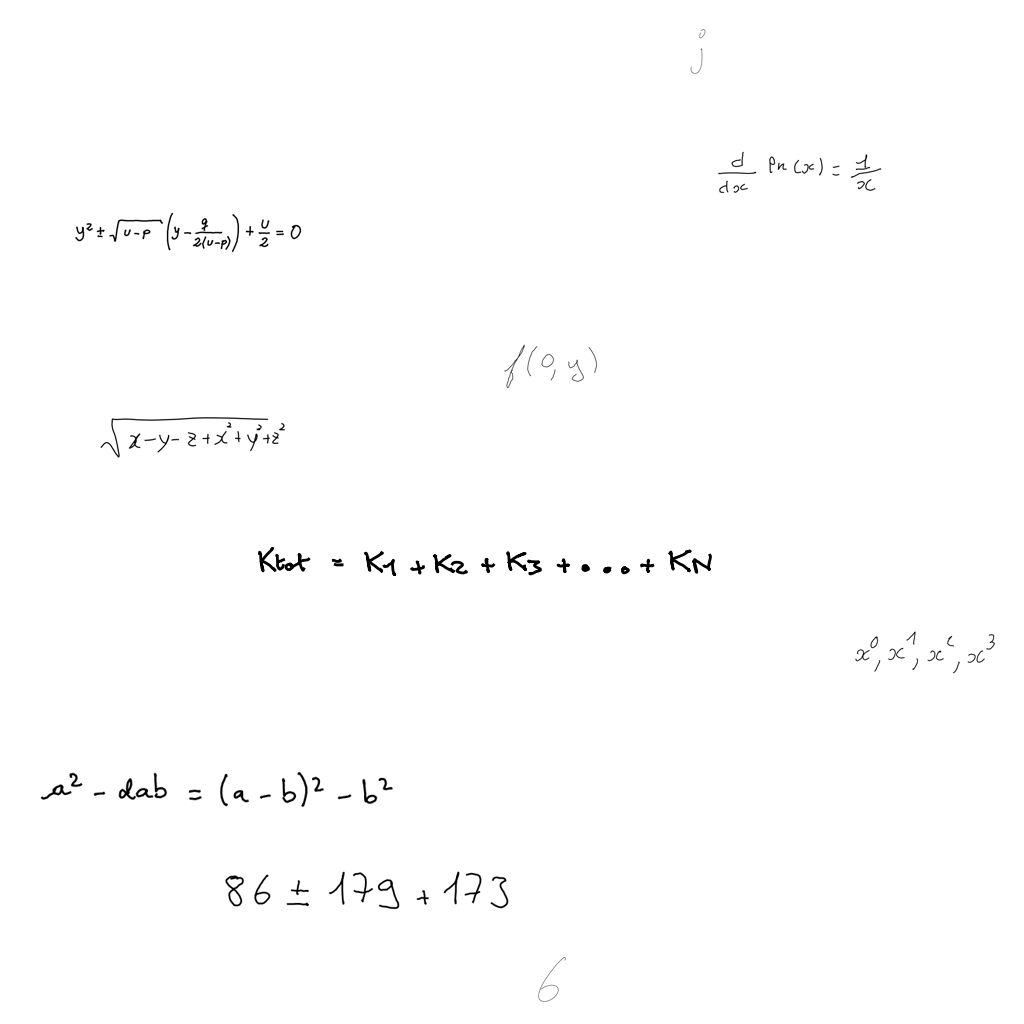 j
d/dx ln(x) = 1/x
y² ± √(u-p) (y - q/2(u-p)) + u/2 = 0
f(0,y)
√(x-y-z+x²+y²+z²)
Ktot = K1 + K2 + K3 + ... + KN
x⁰, x¹, x^c, x³
a² - dab = (a - b)² - b²
86 ± 179 + 173
6